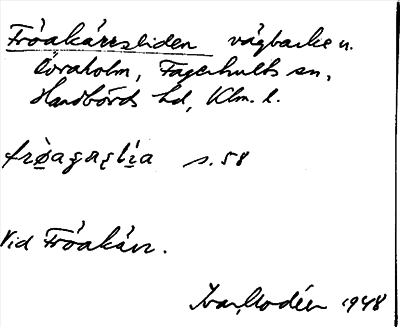 Fröakärrsliden vägbacke n.
Löraholm, Fagerhults sn,
Handbörds hd, Klm. l.
s. 58
Vid Fröakärr.
Ivar Modéer 1948